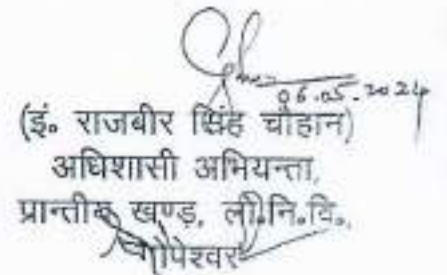 06.05.2024
(इं० राजबीर सिंह चौहान)
अधिशासी अभियन्ता,
प्रान्तीय खण्ड़, लो०नि०वि०,
गोपेश्वर